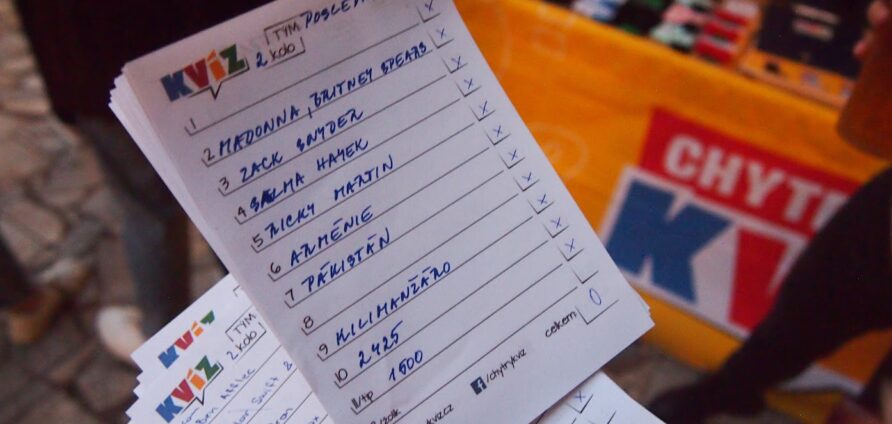 KVÍZ
TÝM
2. kolo
1
2 MADONNA, BRITNEY SPEARS X
3 ZACK SNYDER X
4 SALMA HAYEK X
5 RICKY MARTIN X
6 ARMÉNIE X
7 PÁKISTÁN X
8 X
9 KILIMANŽÁRO X
10 2425
11/tp 1500
celkem: 0
/chytrykviz
KVÍZ
TÝM
KVÍZ
2. kolo
CHYT
KV